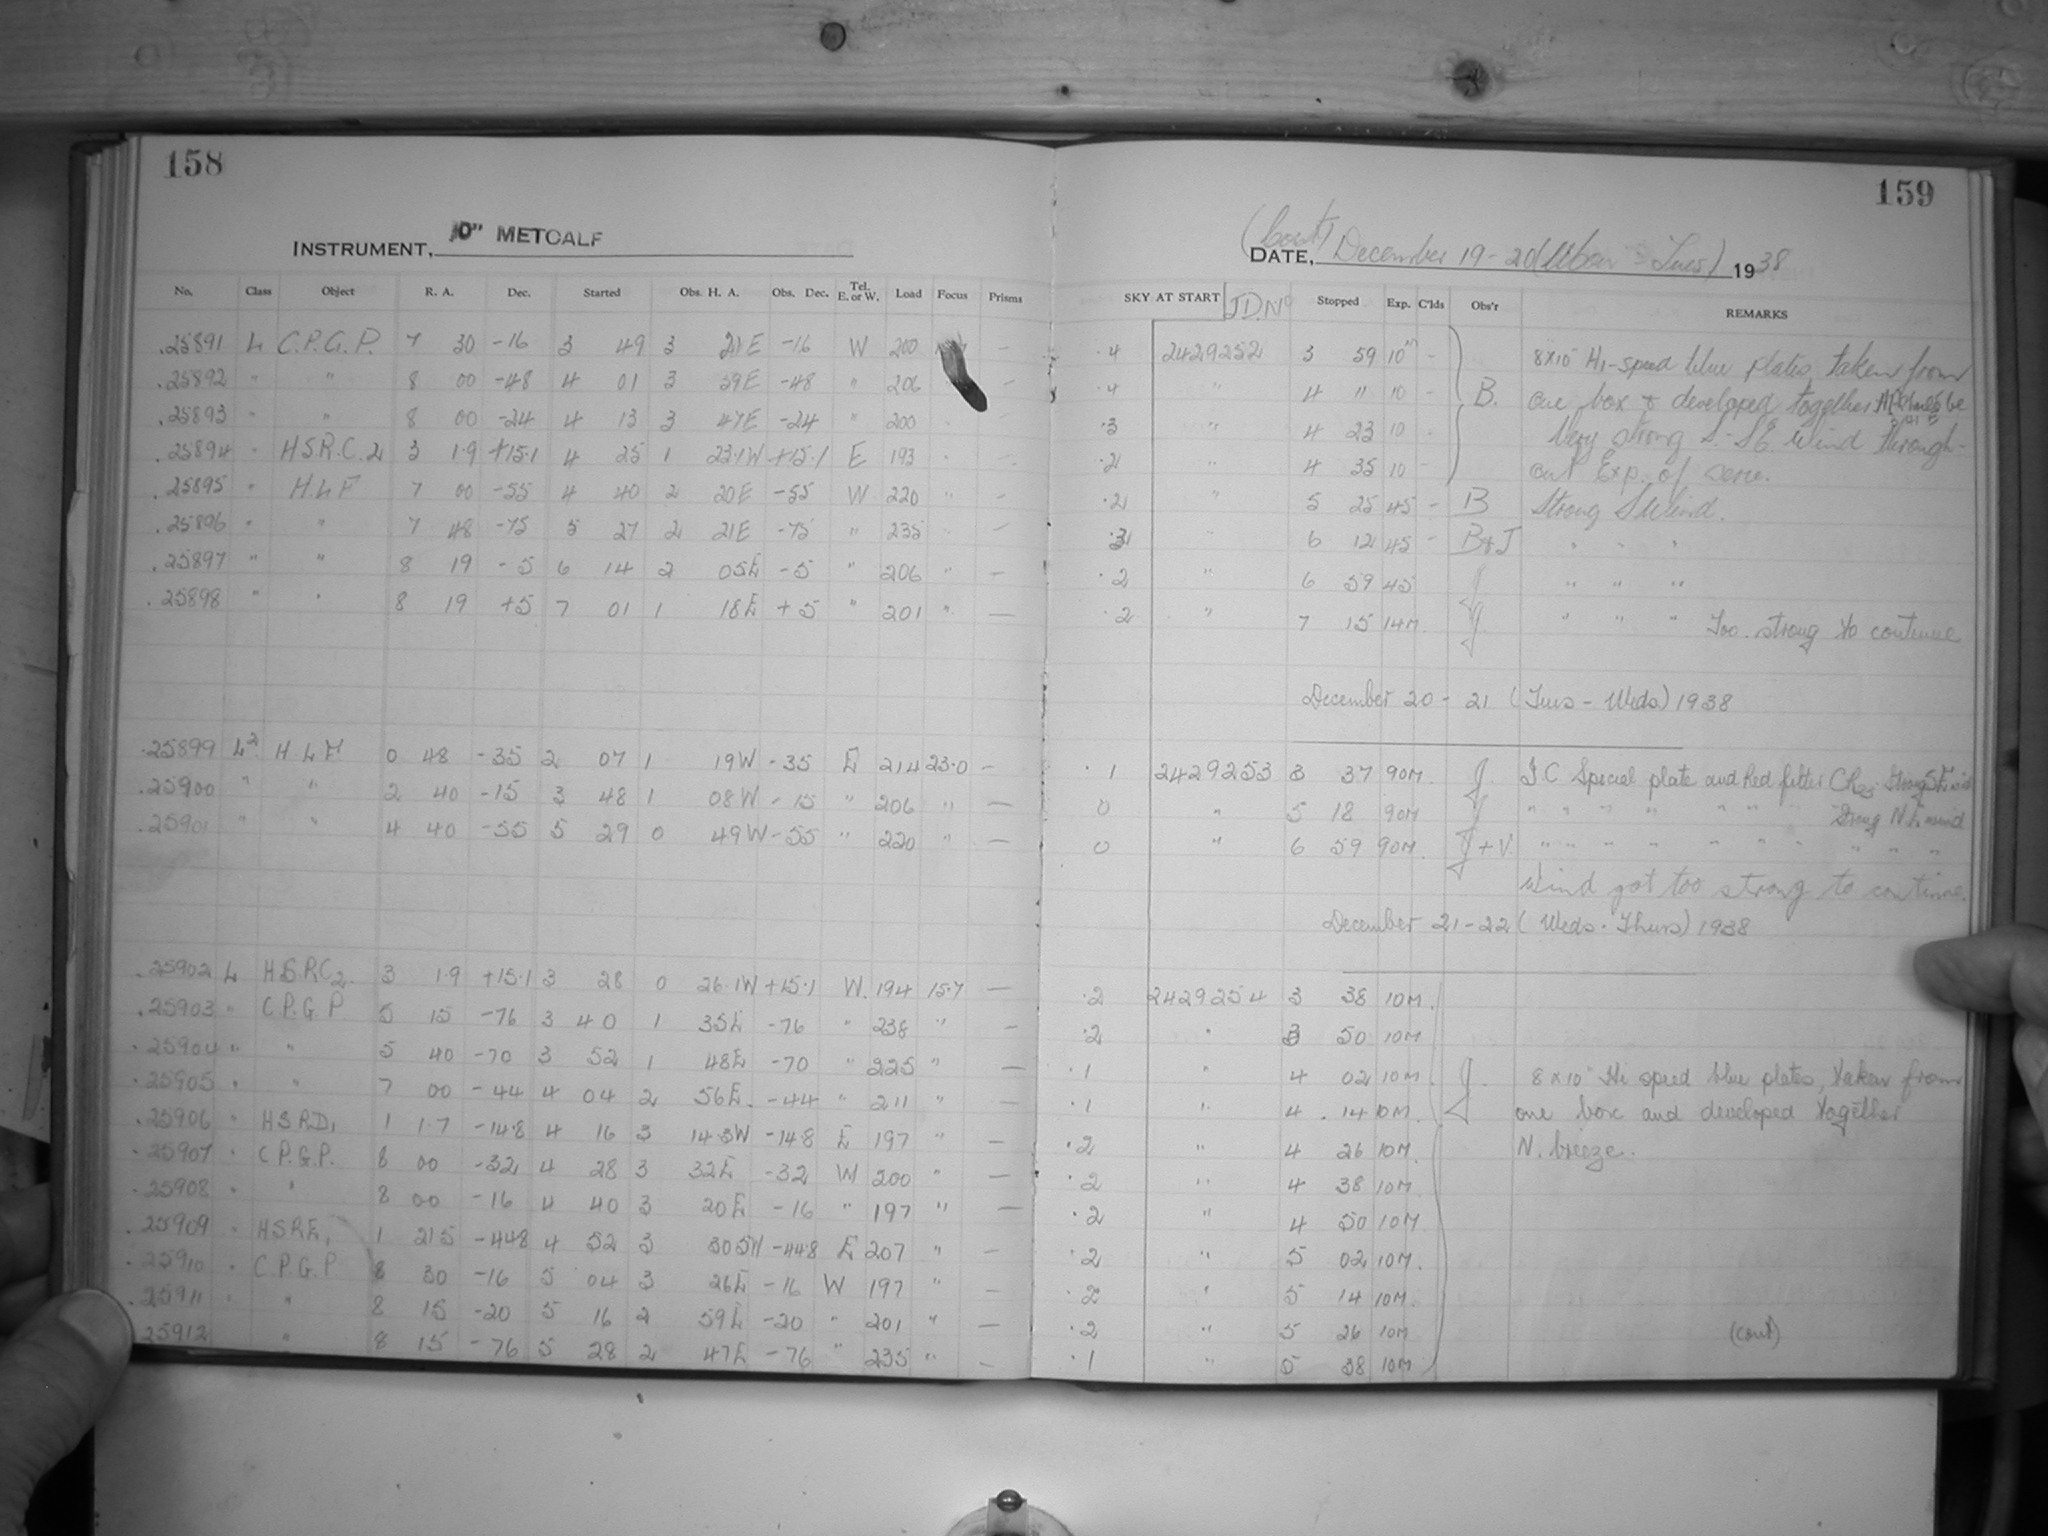 158
INSTRUMENT, 10" METCALF
No. Class Object R. A. Dec. Started Obs. H. A. Obs. Dec. Tel. E. or W. Load Focus Prisms
25891 L C.P.G.P. 7 30 -16 3 49 3 21E -16 W 200 —
25892 " " 8 00 -48 4 01 3 39E -48 " 206 —
25893 " " 8 00 -24 4 13 3 47E -24 " 200
25894 " H.S.R.C.2 3 1.9 +15.1 4 25 1 23.1W +15.1 E 193 " —
25895 " H.L.F 7 00 -55 4 40 2 20E -55 W 220 " —
25896 " " 7 48 -75 5 27 2 21E -75 " 235 —
25897 " " 8 19 -5 6 14 2 05E -5 " 206 " —
25898 " " 8 19 +5 7 01 1 18E +5 " 201 " —
25899 L2 H L F 0 48 -35 2 07 1 19W -35 E 214 23.0 —
25900 " " 2 40 -15 3 48 1 08W -15 " 206 " —
25901 " " 4 40 -55 5 29 0 49W -55 " 220 " —
25902 L H.S.R.C2. 3 1.9 +15.1 3 28 0 26.1W +15.1 W. 194 15.7 —
25903 " C.P.G.P 5 15 -76 3 40 1 35E -76 " 238 " —
25904 " " 5 40 -70 3 52 1 48E -70 " 225 "
25905 " " 7 00 -44 4 04 2 56E -44 " 211 " —
25906 " H.S.R.D1 1 1.7 -14.8 4 16 3 14.3W -14.8 E 197 " —
25907 " C.P.G.P. 8 00 -32 4 28 3 32E -32 W 200 "
25908 " " 8 00 -16 4 40 3 20E -16 " 197 " —
25909 " H.S.R.E1 1 21.5 -44.8 4 52 3 30.5W -44.8 E 207 " —
25910 " C.P.G.P 8 30 -16 5 04 3 26E -16 W 197 " —
25911 " " 8 15 -20 5 16 2 59E -20 " 201 " —
25912 " 8 15 -76 5 28 2 47E -76 " 235 " —
159
(cont)
DATE, December 19-20 (Mon - Tues) 1938
SKY AT START J.D. No Stopped Exp. C'lds Obs'r REMARKS
.4 2429252 3 59 10m - 8x10" Hi-speed blue plates, taken from
.4 " 4 11 10 - B. one box & developed together
.3 " 4 23 10 Very strong S.-SE. wind through-
.2 " 4 35 10 - out Exp. of series.
.2 " 5 25 45 - B Strong S Wind.
.3 " 6 12 45 - B+J " " "
.2 " 6 59 45 J " " "
.2 " 7 15 14M. J " " " Too strong to continue
December 20 - 21 (Tues - Weds) 1938
.1 2429253 3 37 90M. J. I.C Special plate and Red filter
0 " 5 18 90M J " " " " " " Strong N. wind
0 " 6 59 90M. J+V. " " " " " " " " " "
Wind got too strong to continue.
December 21-22 (Weds. Thurs) 1938
.2 2429254 3 38 10M.
.2 " 3 50 10M
.1 " 4 02 10M. J. 8x10" Hi speed blue plates, taken from
.1 " 4 14 10M. one box and developed together
.2 " 4 26 10M. N. breeze.
.2 " 4 38 10M.
.2 " 4 50 10M.
.2 " 5 02 10M.
.2 " 5 14 10M.
.2 " 5 26 10M (cont)
.1 " 5 38 10M